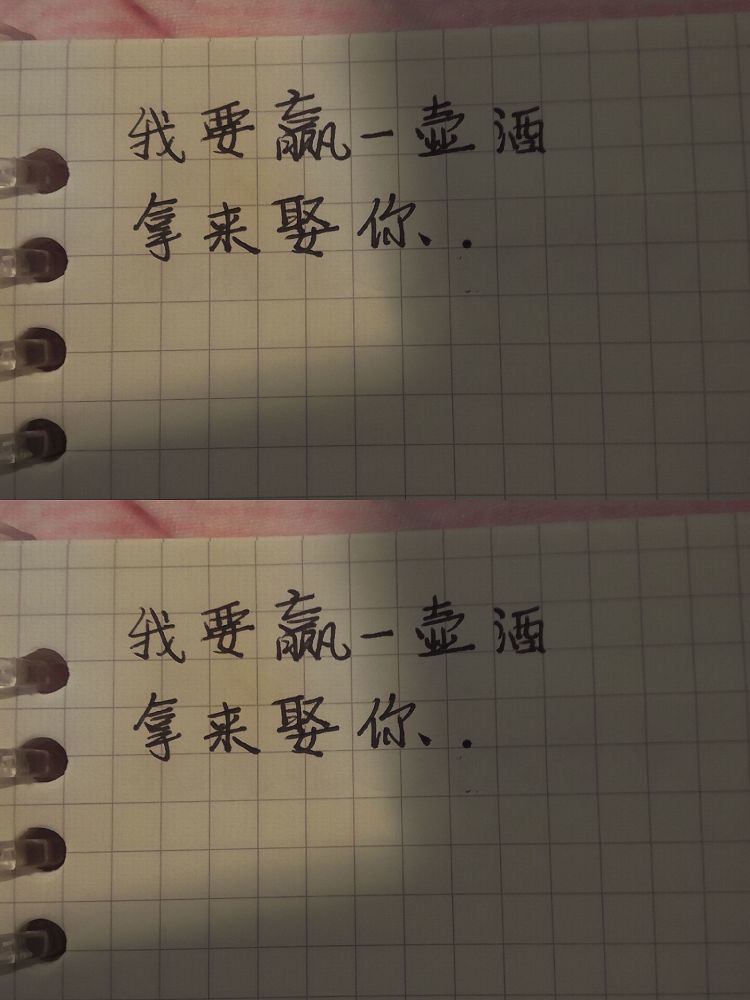 我要赢一壶酒
拿来娶你、.
我要赢一壶酒
拿来娶你、.